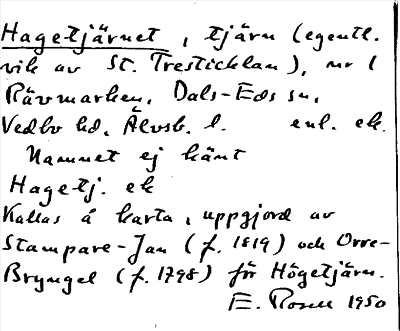 Hagetjärnet, tjärn (egentl.
vik av St. Tresticklan), nr 1
Rävmarken, Dals-Eds sn,
Vedbo hd, Älvsb. l. enl. ek.
Namnet ej känt
Hagetj. ek
Kallas å karta, uppgjord av
Stampare-Jan (f. 1819) och Orre-
Bryngel (f. 1798) för Högetjärn.
E. Rosell 1950